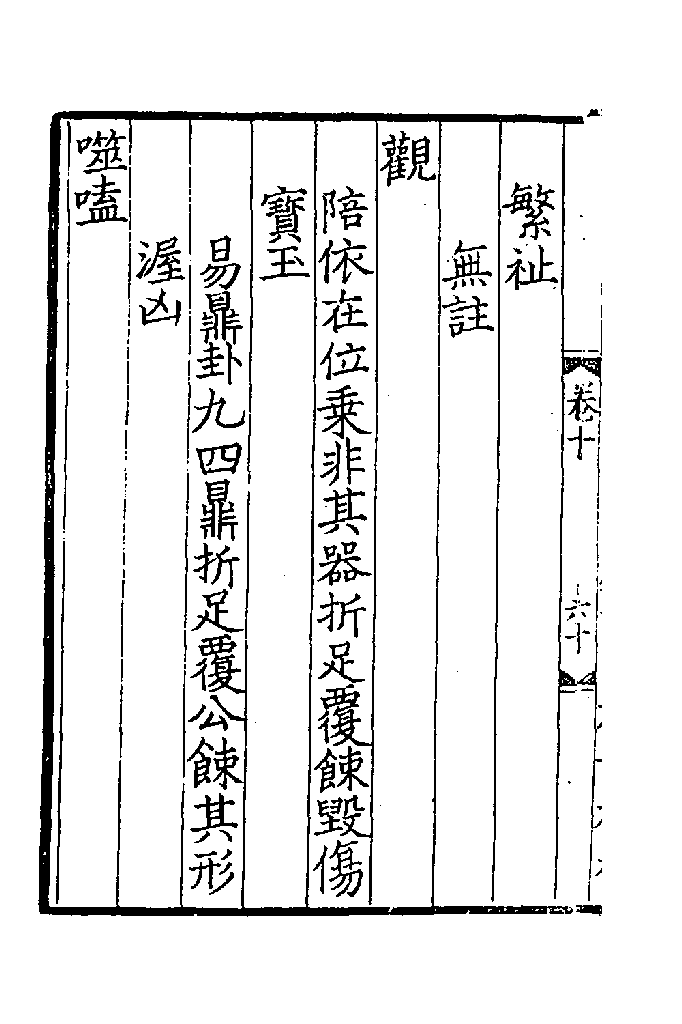 卷十
六十
繁祉
無註
觀
陪依在位乗非其器折足覆餗毀傷
寶玉
易鼎卦九四鼎折足覆公餗其形
渥凶
噬嗑